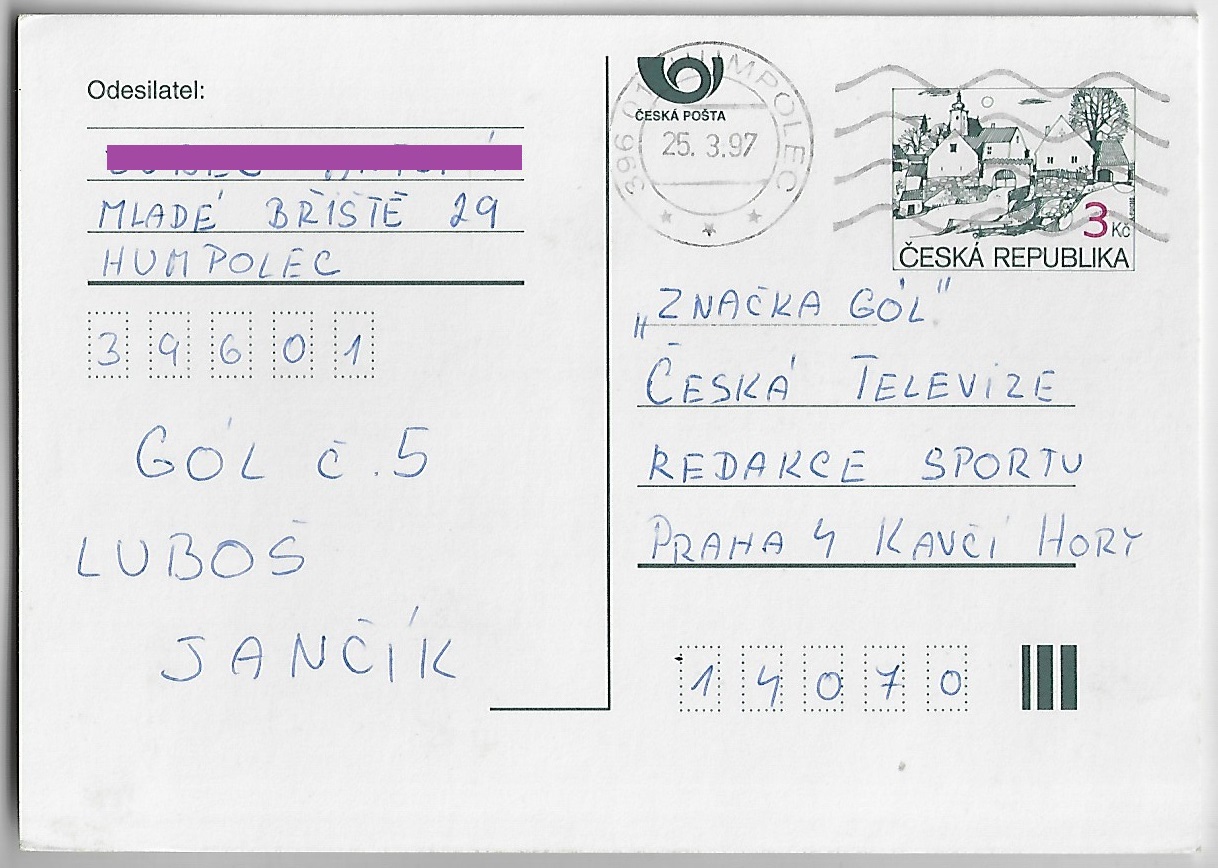 Odesilatel:
MLADÉ BŘIŠTĚ 29
HUMPOLEC
39601
GÓL č.5
LUBOŠ
JANČÍK
ČESKÁ POŠTA
396 01 HUMPOLEC
25. 3.97
3 Kč
ČESKÁ REPUBLIKA
„ZNAČKA GÓL"
ČESKÁ TELEVIZE
REDAKCE SPORTU
PRAHA 4 KAVČÍ HORY
14070